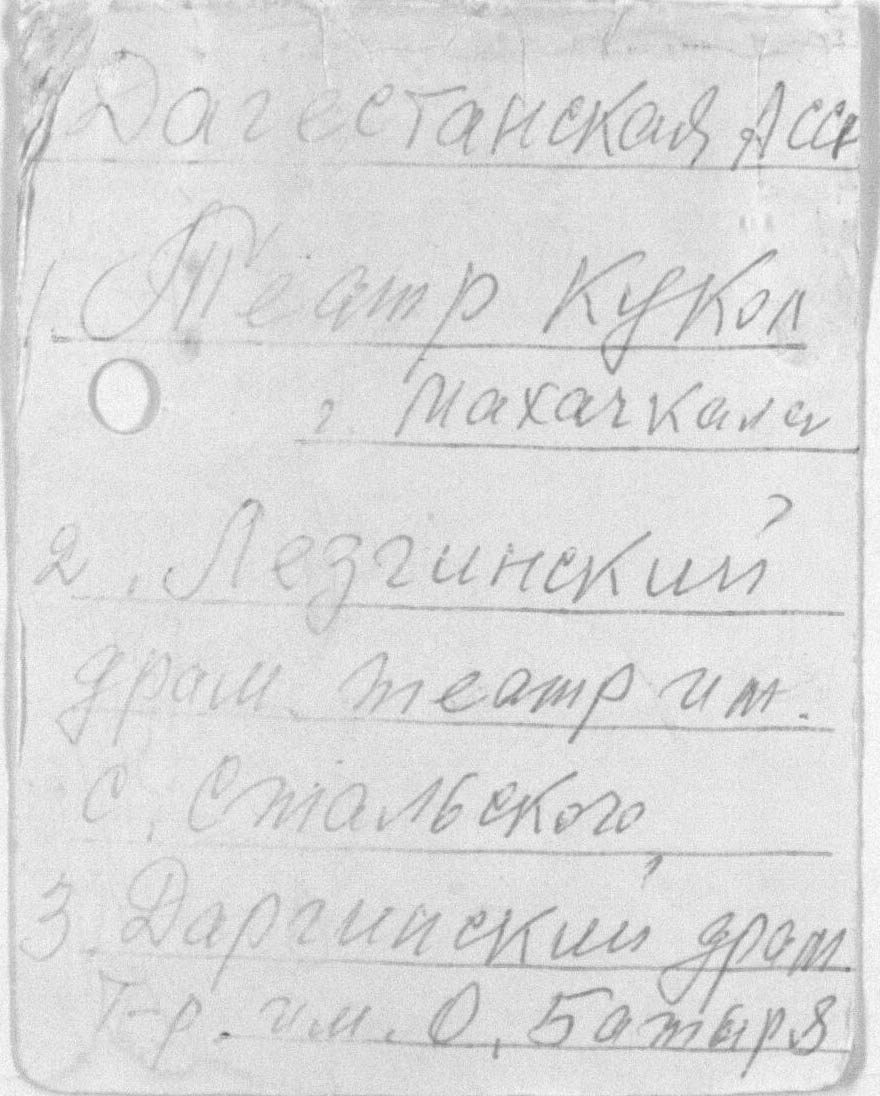 Дагестанская АССР
1. Театр Кукол
г. Махачкала
2. Лезгинский
драм. театр им.
С. Стальского
3. Даргинский драм
т-р. им. О. Батыря